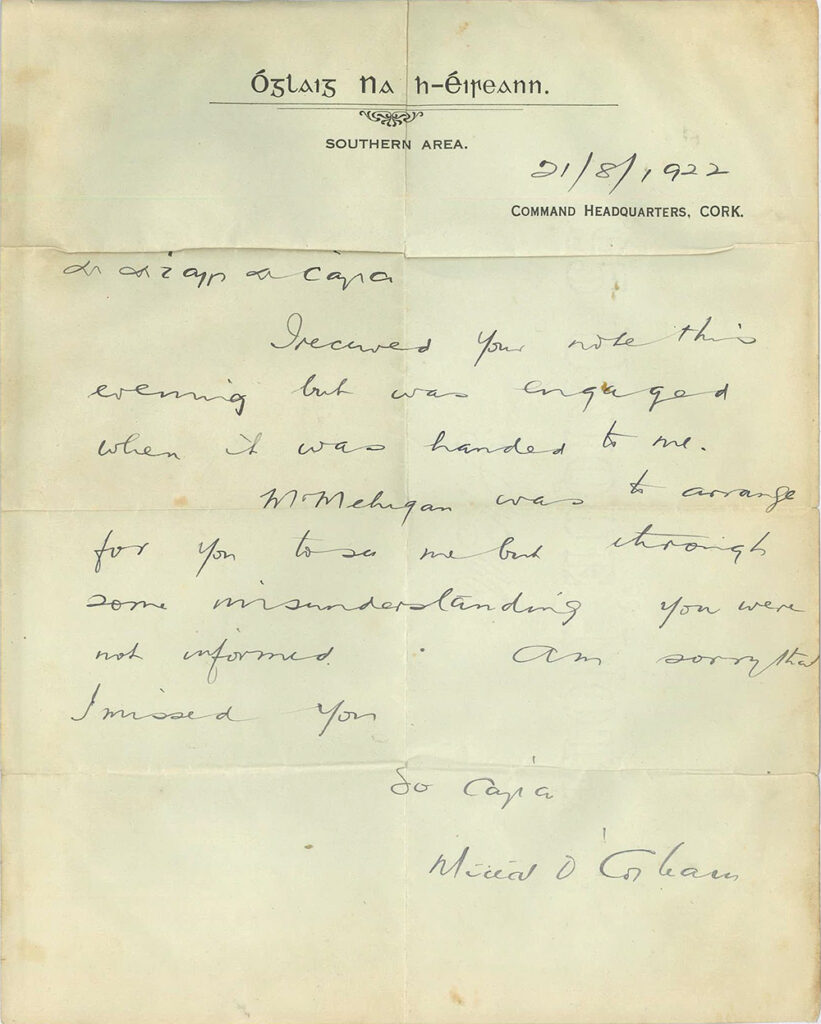 Óglaiġ na h-Éireann.
SOUTHERN AREA.
21/8/1922
COMMAND HEADQUARTERS, CORK.
a ċara
I received your note this
evening but was engaged
when it was handed to me.
Mr Mehigan was to arrange
for you to see me but through
some misunderstanding you were
not informed. Am sorry that
I missed you
Do ċara
Mícéal Ó Coileáin